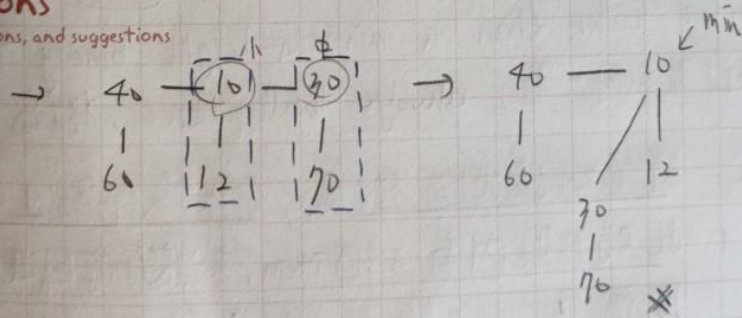 ons
ons, and suggestions
小 中 min
→ 40 — 10 — 30 → 40 — 10
60 12 70 60 12
30
70